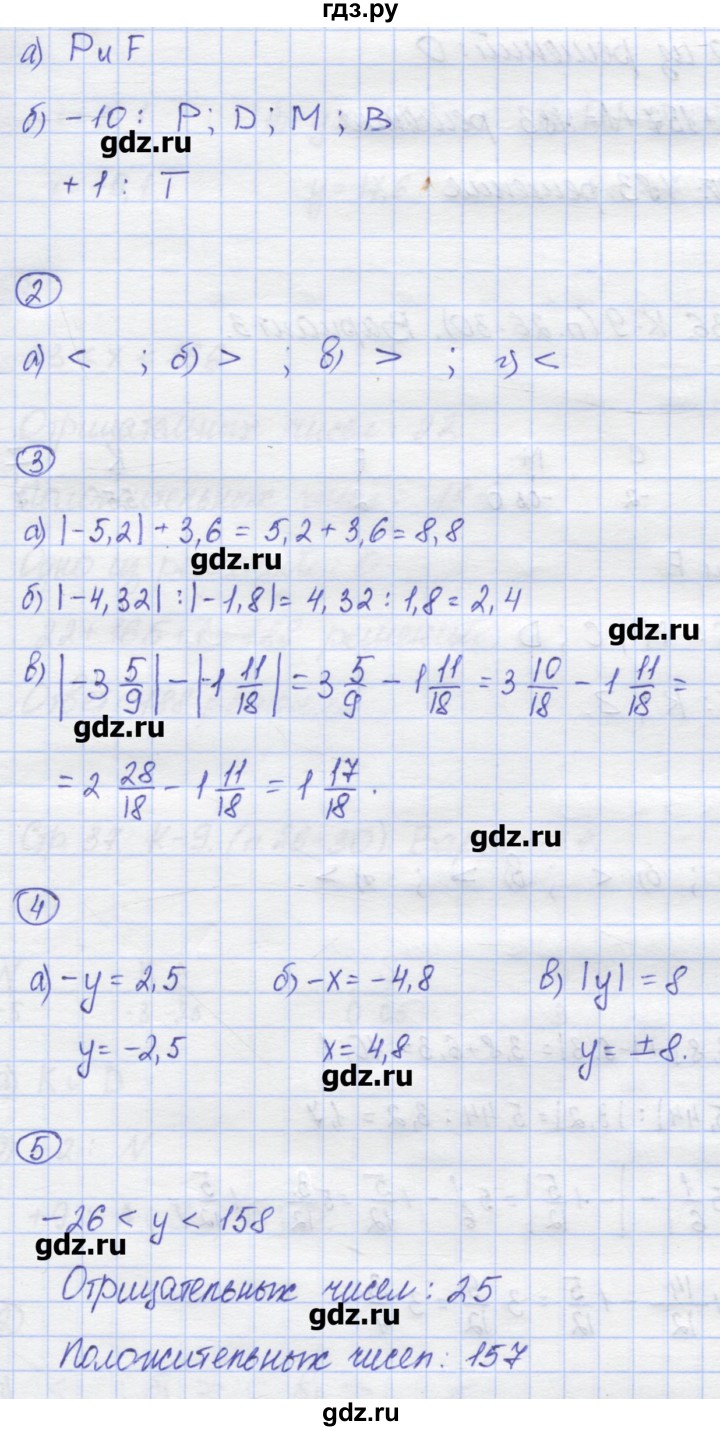 гдз.ру
а) P и F
б) -10: P; D; M; B
gdz.ru
+1: T
2
а) < ; б) > ; в) > ; г) <
3
а) |-5,2| + 3,6 = 5,2 + 3,6 = 8,8
gdz.ru
б) |-4,32| : |-1,8| = 4,32 : 1,8 = 2,4
gdz.ru
в) |-3 5/9| - |-1 11/18| = 3 5/9 - 1 11/18 = 3 10/18 - 1 11/18 =
gdz.ru
= 2 28/18 - 1 11/18 = 1 17/18.
gdz.ru
4
а) -y = 2,5 б) -x = -4,8 в) |y| = 8
y = -2,5 x = 4,8 y = ±8.
gdz.ru
5
-26 < y < 158
gdz.ru
Отрицательных чисел: 25
gdz.ru
Положительных чисел: 157
gdz.ru